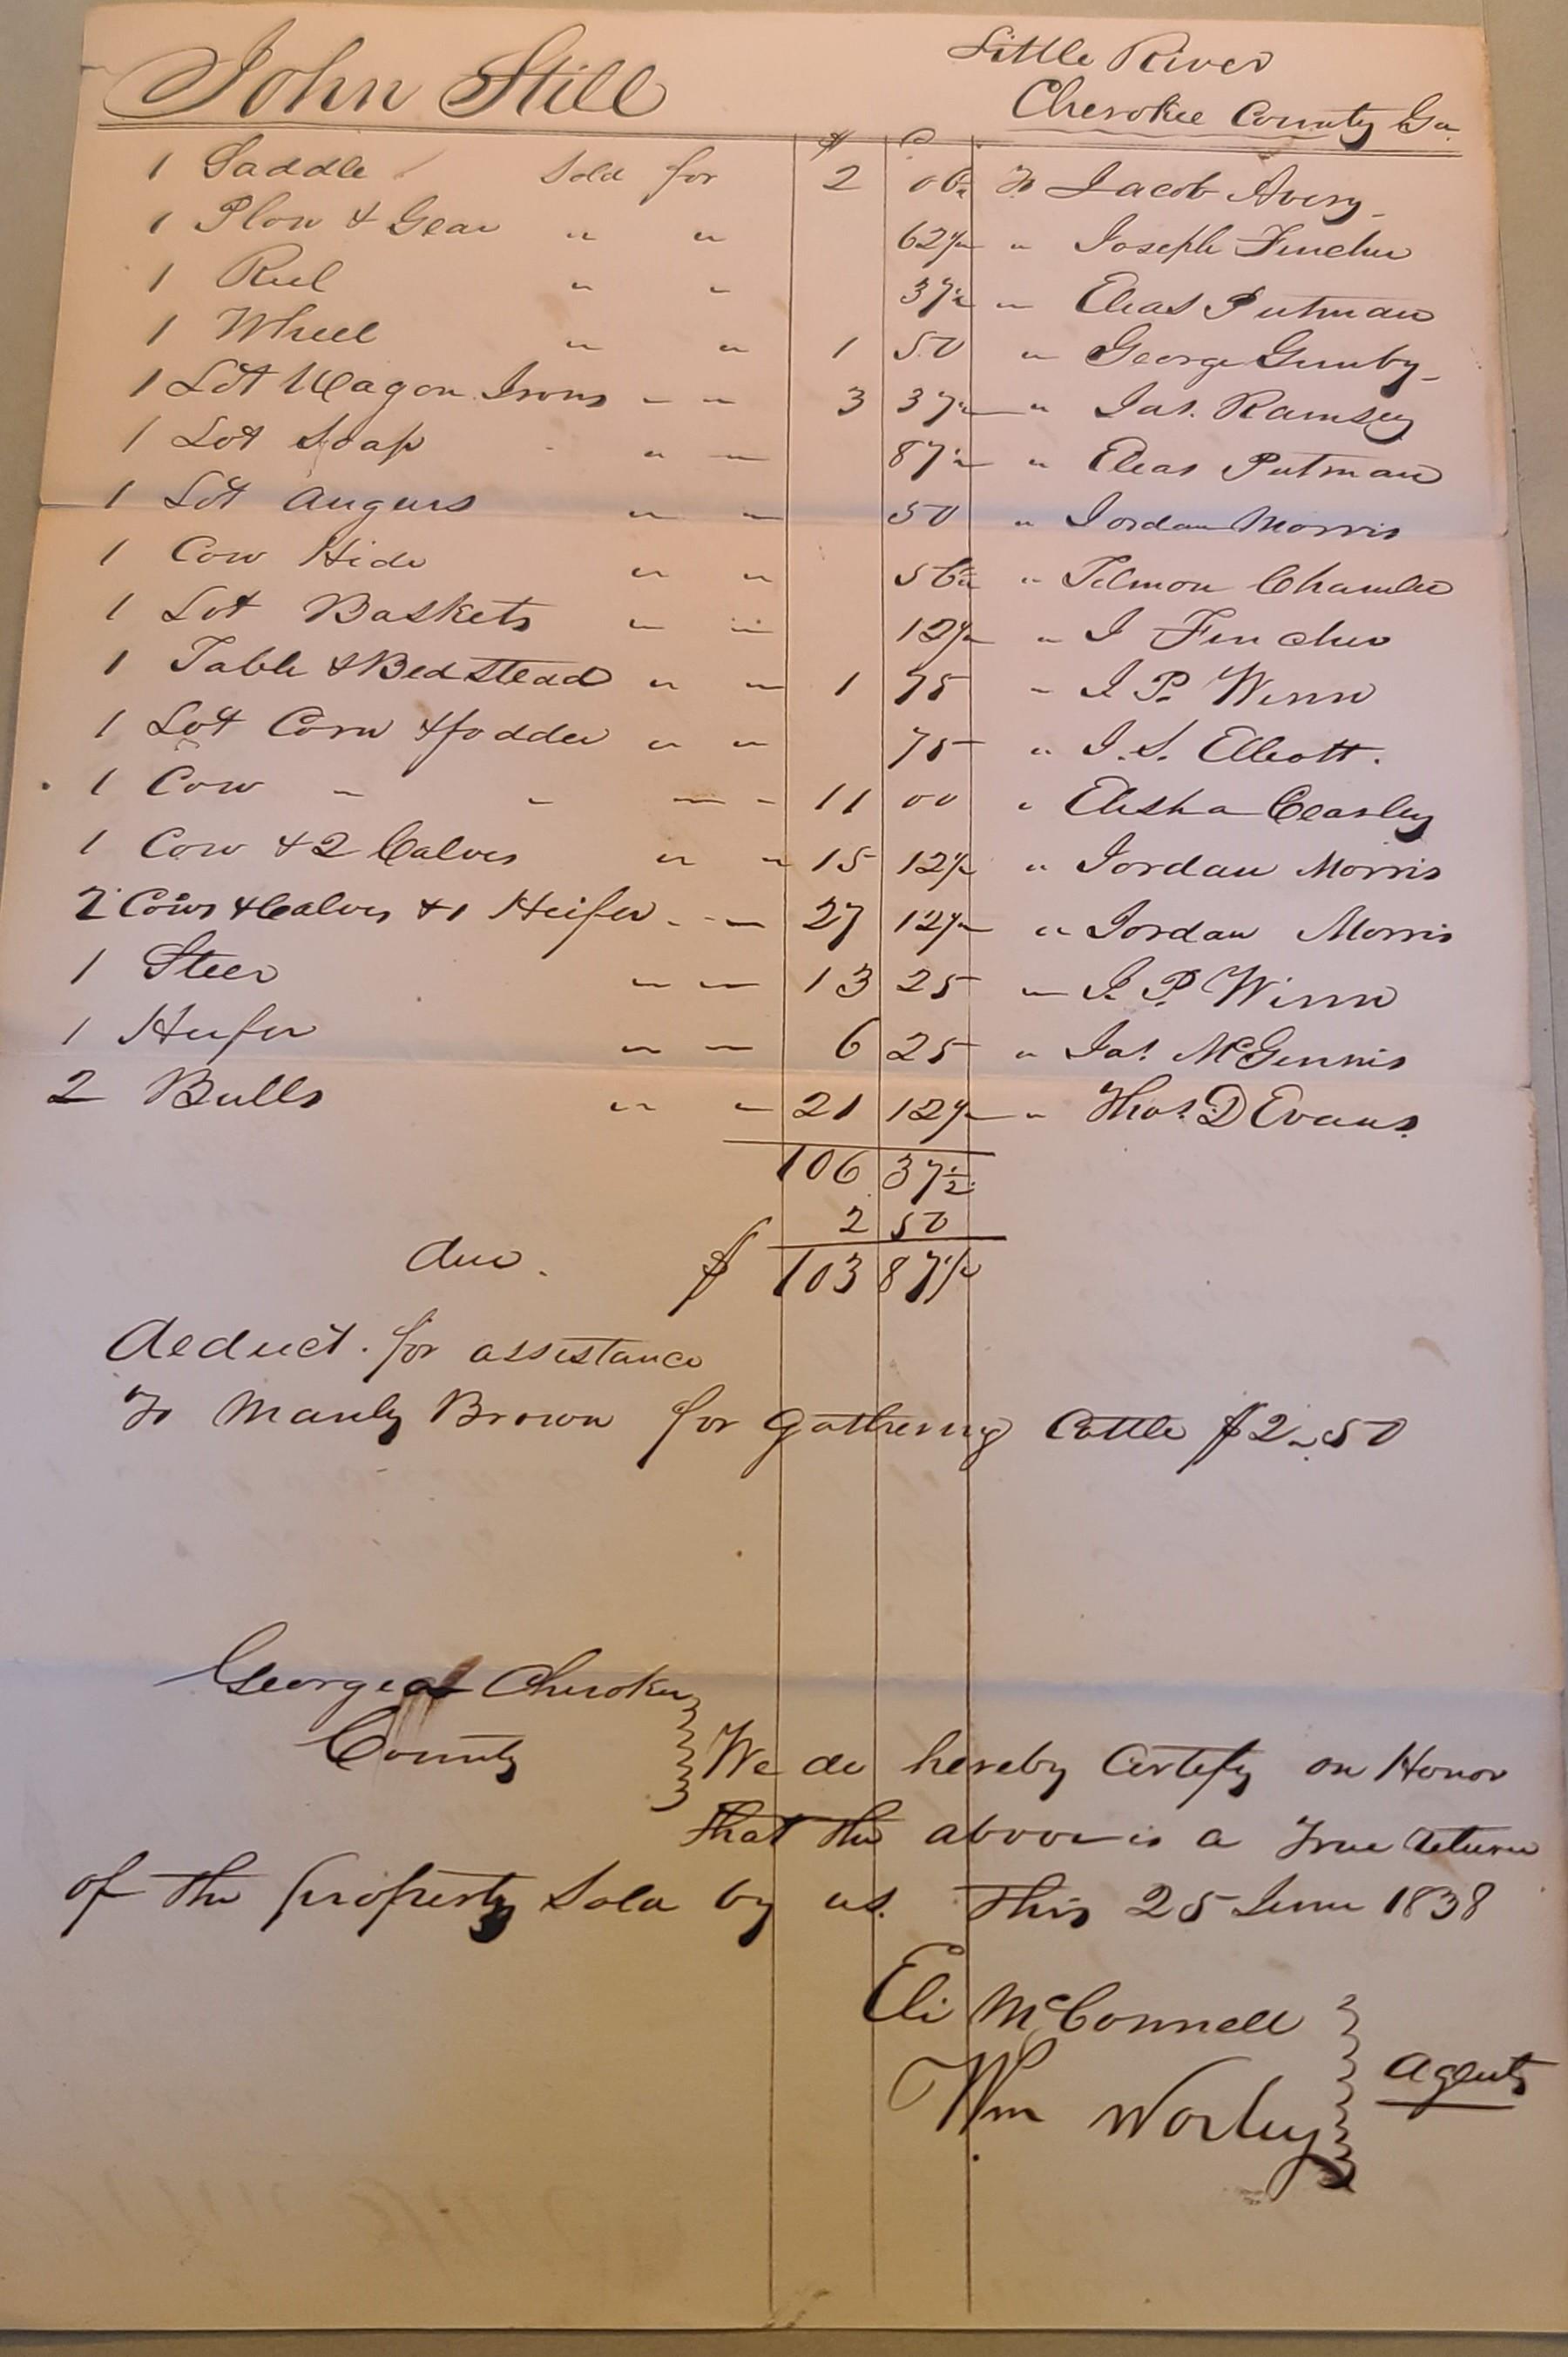 John Still
Little River
Cherokee County Ga.
$ C
1 Saddle Sold for 2 06¼ To Jacob Avery
1 Plow & Gear " " 62½ " Joseph Fincher
1 Reel " " 37½ " Elias Putman
1 Wheel " " 1 50 " George Gunby
1 Lot Wagon Irons " " 3 37½ " Jas. Ramsey
1 Lot Soap " " 87½ " Elias Putman
1 Lot Augurs " " 50 " Jordan Morris
1 Cow Hide " " 56¼ " Tilmon Chamlee
1 Lot Baskets " " 12½ " J Fincher
1 Table & Bedstead " " 1 75 " J P. Winn
1 Lot Corn & fodder " " 75 " J. S. Elliott.
1 Cow " " " " 11 00 " Elisha Ceasley
1 Cow & 2 Calves " " 15 12½ " Jordan Morris
2 Cows & Calves & 1 Heifer " " 27 12½ " Jordan Morris
1 Steer " " 13 25 " J. P. Winn
1 Heifer " " 6 25 " Jas. McGinnis
2 Bulls " " 21 12½ " Thos. D Evans.
106 37½
2 50
due. $ 103 87½
deduct. for assistance
To Manly Brown for gathering Cattle $2.50
Georgia Cherokee
County
We do hereby Certify on Honor
that the above is a True return
of the property Sold by us. This 25 June 1838
Eli McConnell
Wm Worley
Agents